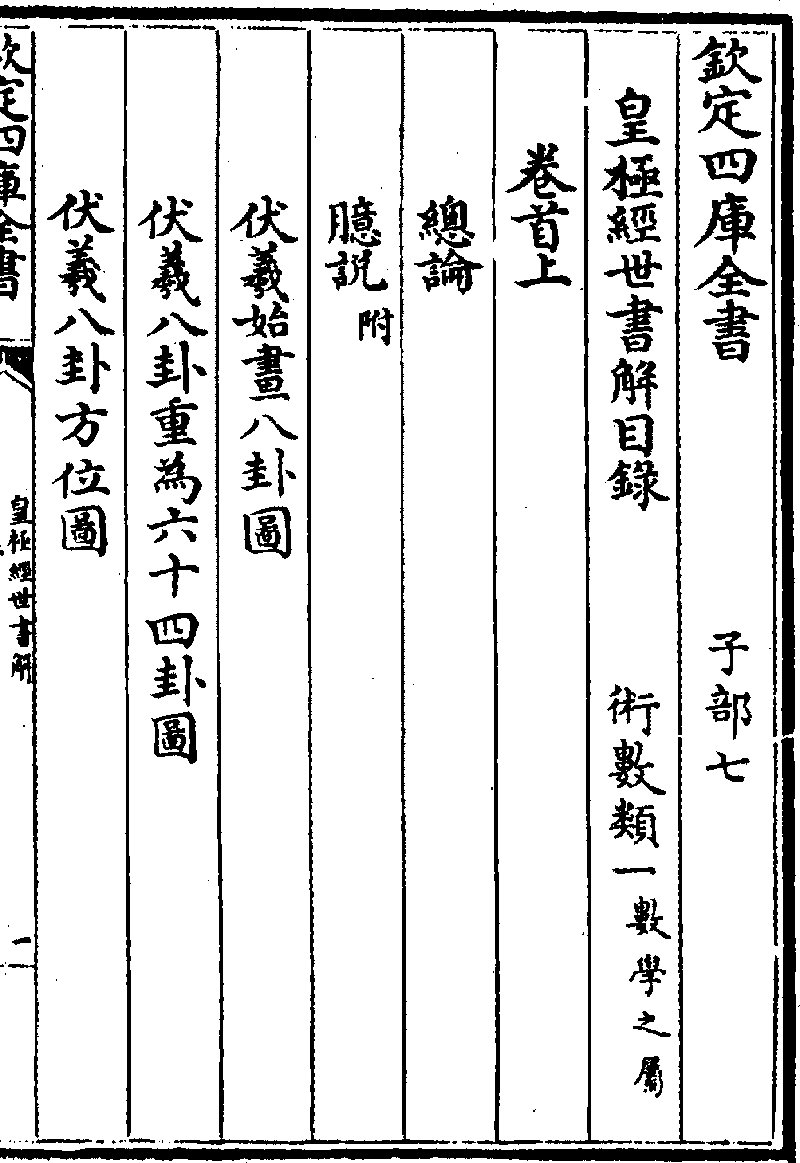 欽定四庫全書 子部七
皇極經世書解目錄 術數類一數學之屬
卷首上
總論
臆説附
伏羲始畫八卦圖
伏羲八卦重為六十四卦圖
伏羲八卦方位圖
欽定四庫全書 皇極經世書解 一